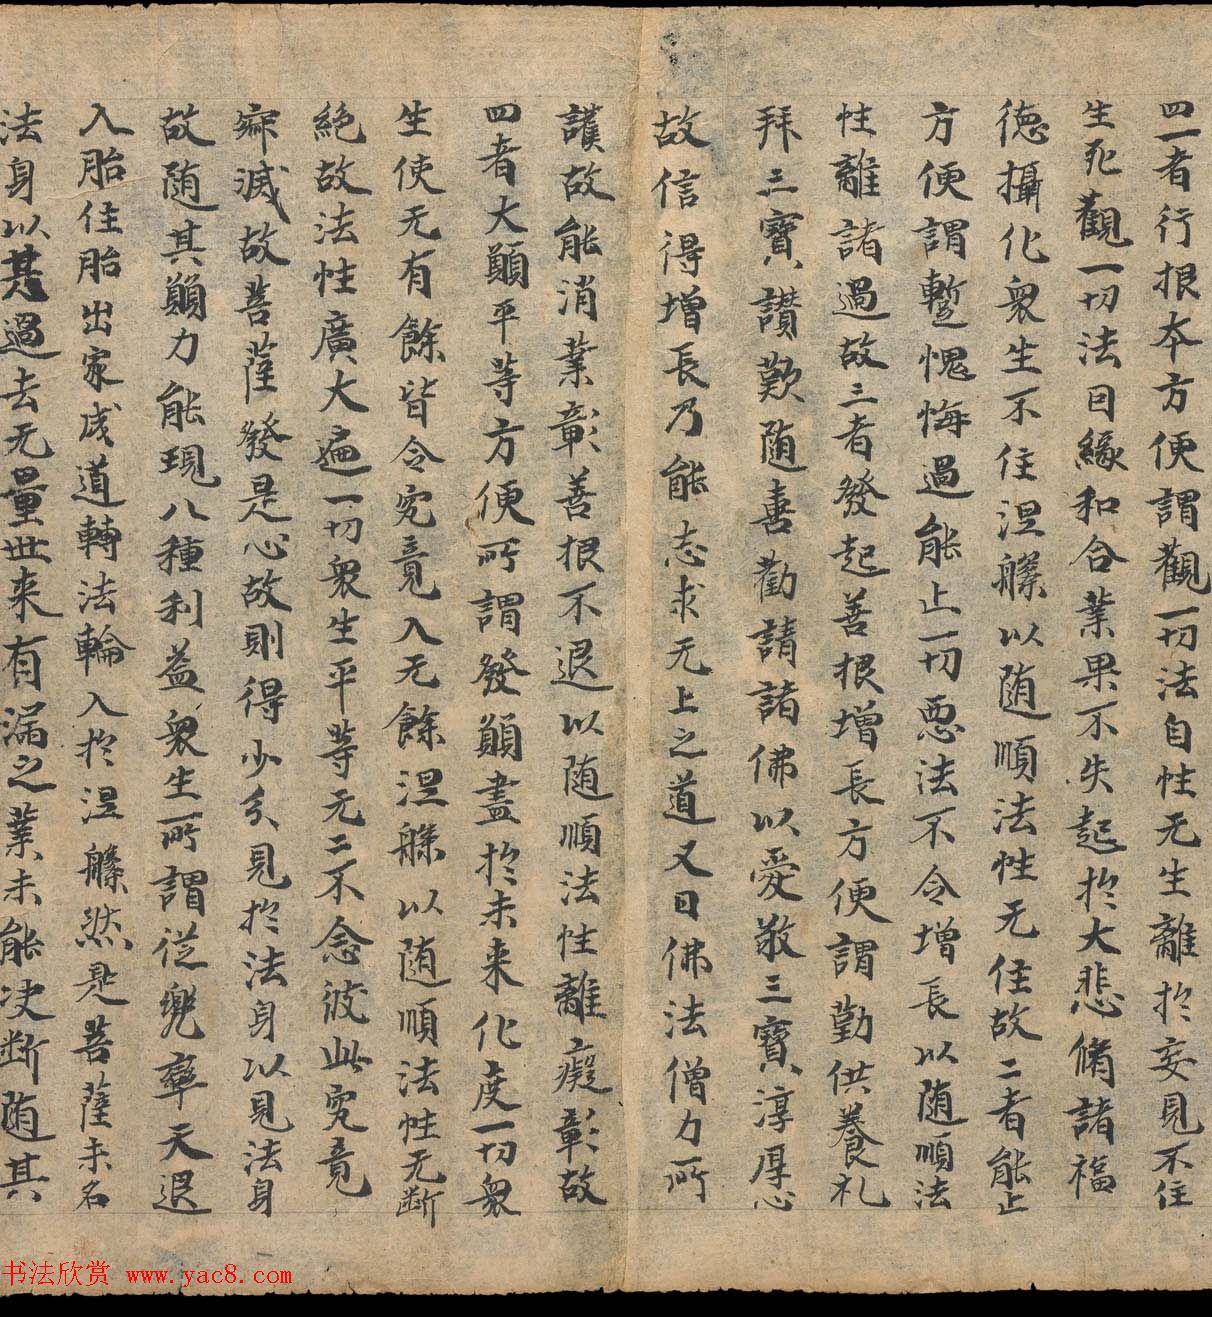 四一者行根本方便謂觀一切法自性无生離於妄見不住
生死觀一切法因緣和合業果不失起於大悲脩諸福
德攝化衆生不住涅槃以随順法性无住故二者能止
方便謂慙愧悔過能止一切惡法不令增長以随順法
性離諸過故三者發起善根增長方便謂勤供養礼
拜三寶讃歎随喜勸請諸佛以愛敬三寶淳厚心
故信得增長乃能志求无上之道又因佛法僧力所
護故能消業彰善根不退以随順法性離癡彰故
四者大願平等方便所謂發願盡於未来化度一切衆
生使无有餘皆令究竟入无餘涅槃以随順法性无断
絶故法性廣大遍一切衆生平等无二不念彼此究竟
寂滅故菩薩發是心故則得少分見於法身以見法身
故随其願力能現八種利益衆生所謂従兜率天退
入胎住胎出家成道轉法輪入於涅槃然是菩薩未名
法身以其過去无量世来有漏之業未能決断随其
书法欣赏 www.yac8.com